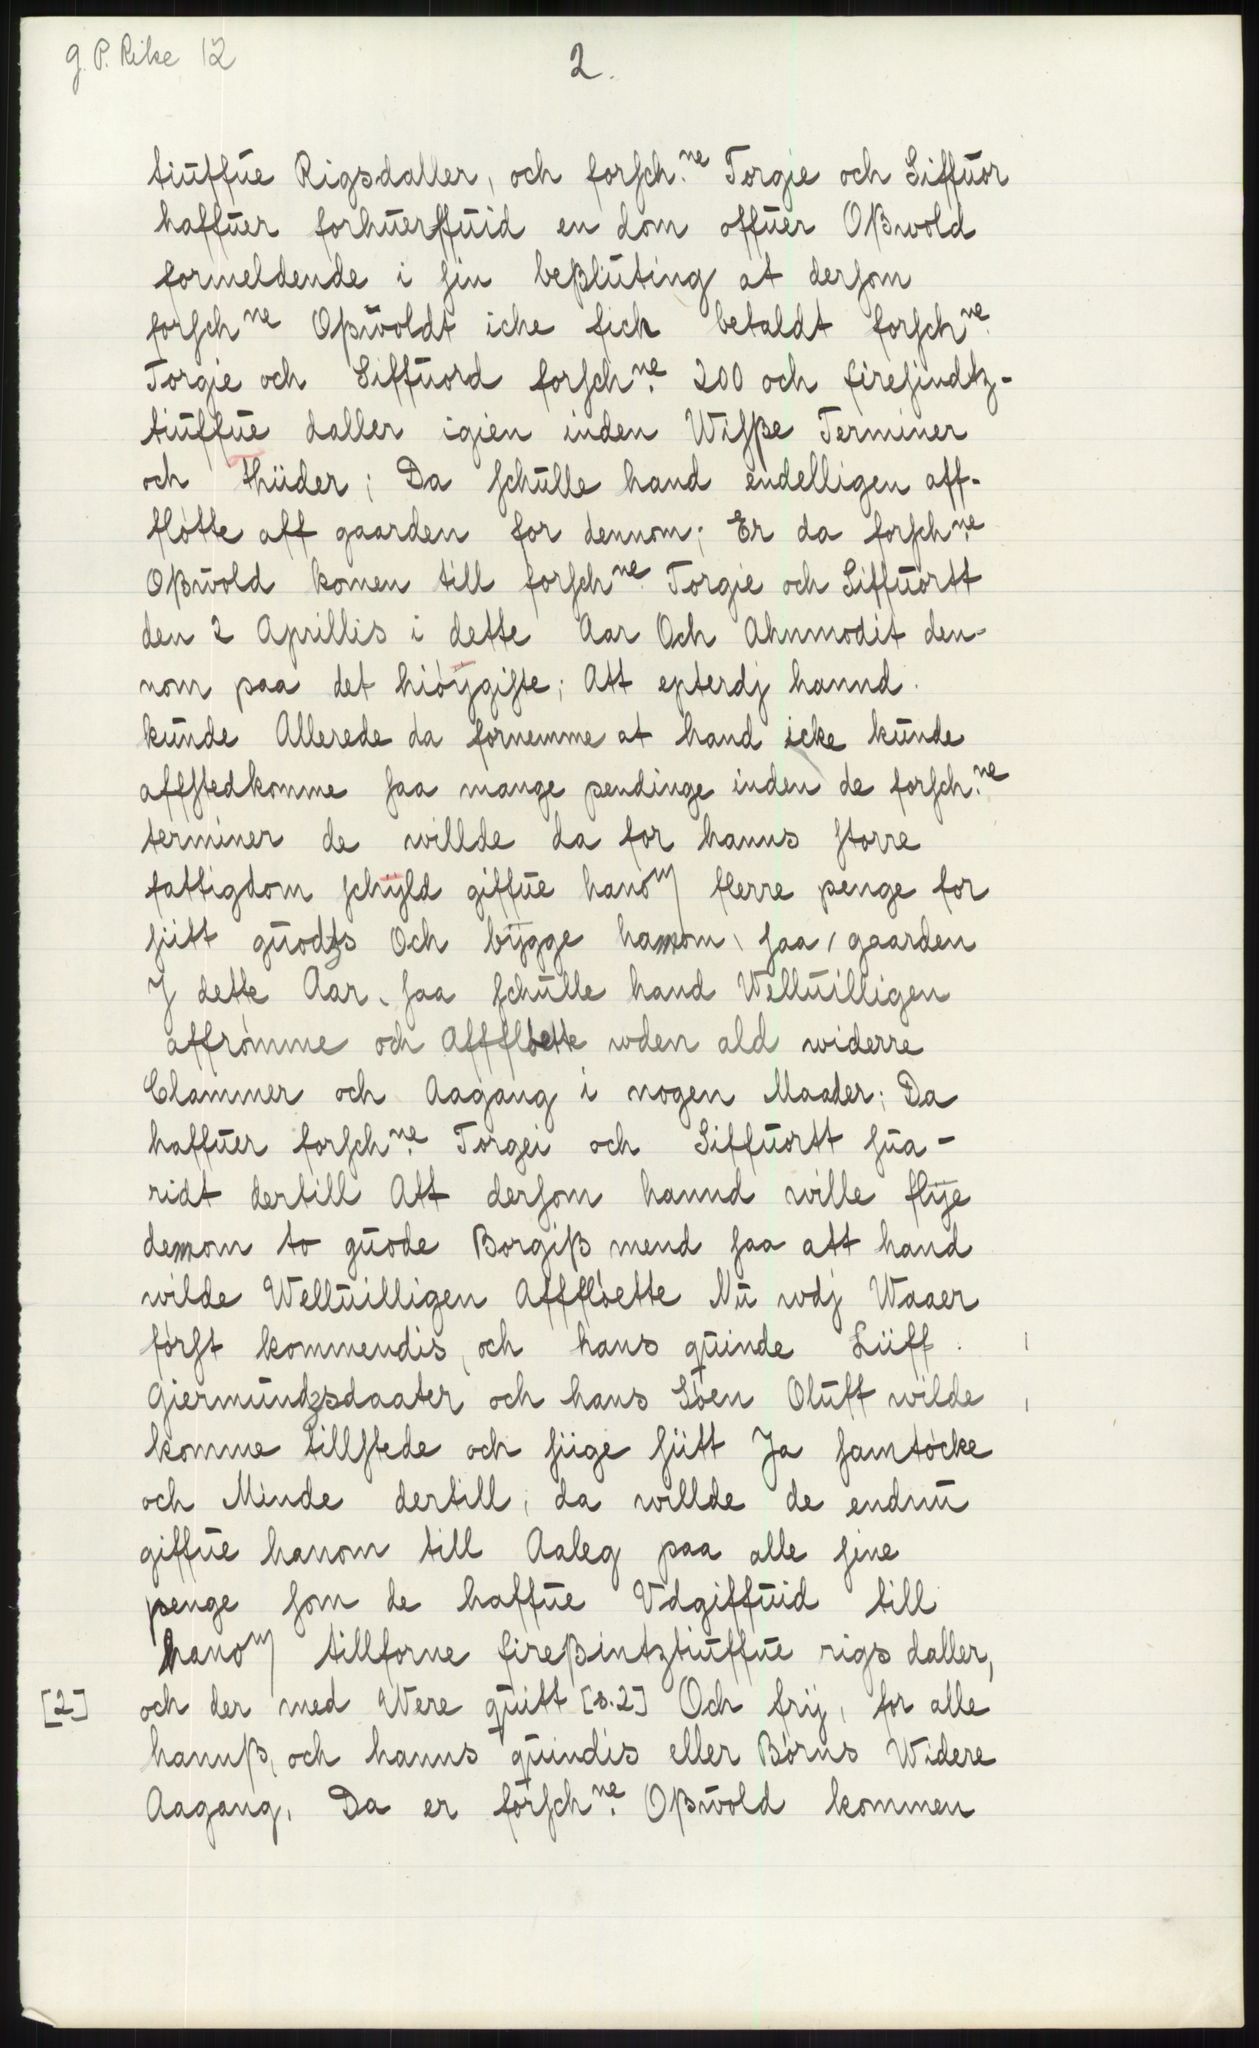 g. P. Rike 12
2.
tiuffue Rigsdaller, och forsch:ne Torgie och Siffuor
haffuer forhuerffuid en dom offuer Oßwold
formeldende i sin beßluting at dersom
forsch ne Oßwoldt iche fich betaldt forsch ne
Torgie och Siffuord forsch ne. 200 och firesindtz-
tiuffue daller igien inden Wisße Terminer
och thiider; Da schulle hand endelligen aff-
fløtte aff gaarden for dennom; Er da forsch ne
Oßwold komen till forsch ne Torgie och Siffuortt
den 2 Aprillis i dette Aar Och Ahnmodit den-
nom paa det hiöygiste; Att epterdj hannd
kunde Allerede da fornemme at hand icke kunde
affstedkomme saa mange pendinge inden de forsch:ne
terminer de willde da for hanns storre
fattigdom schyld giffue hanom flerre penge for
siitt guodts Och bygge hannom, saa, gaarden
J dette Aar, saa schulle hand Welluilligen
affrømme och Afffløtte uden ald widerre
Clammer och Aagang i nogen Maader; Da
haffuer forsch ne. Torgei och Siffuortt sua-
ridt dertill Att dersom hannd wille flye
dennom to guode Borgiß mend saa att hand
wilde Welluilligen Affflöette Nu wdj Waaer
först kommendis, och hans quinde Liiff
Giermundzsdaater och hans Söen Oluff wilde
komme tillstede och siige siitt Ja samtöcke
och Minde dertill, da willde de endnu
giffue hanom till Aaleg paa alle sine
penge som de haffue Udgiffuid till
hanom tillforne fireßintztiuffue rigs daller,
[2] och der med Were quitt [s.2] Och frij, for alle
hannß, och hanns quindis eller Börns Widere
Aagang, Da er försch ne. Oßwold kommen